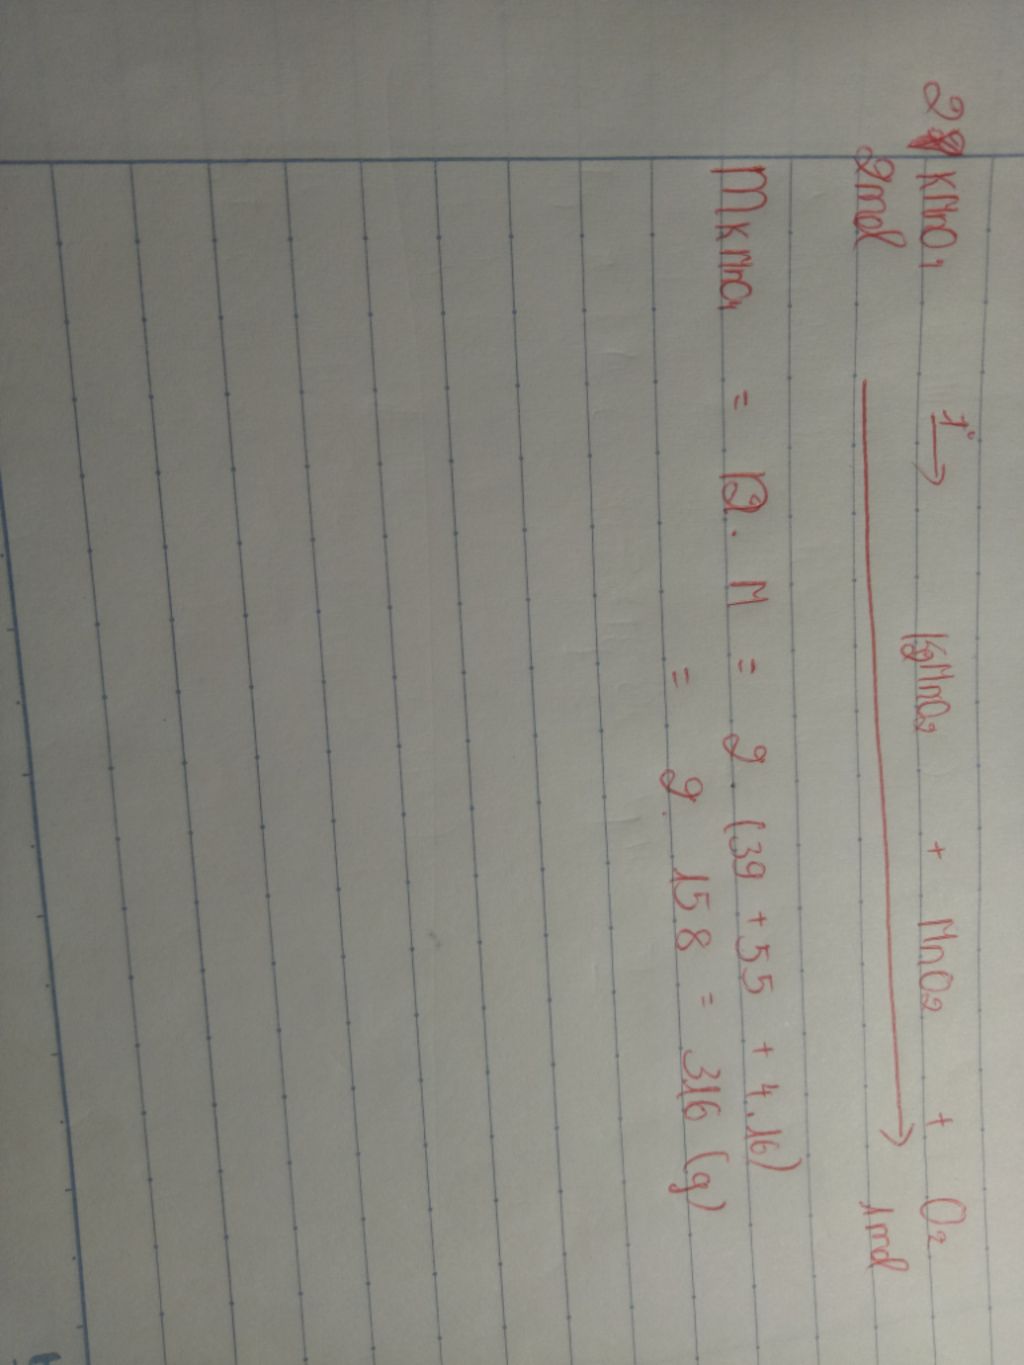 2 KMnO4 t° → K2MnO2 + MnO2 + O2
2mol → 1mol
mKMnO4 = n. M = 2. (39 +55 + 4.16)
= 2. 158 = 316 (g)